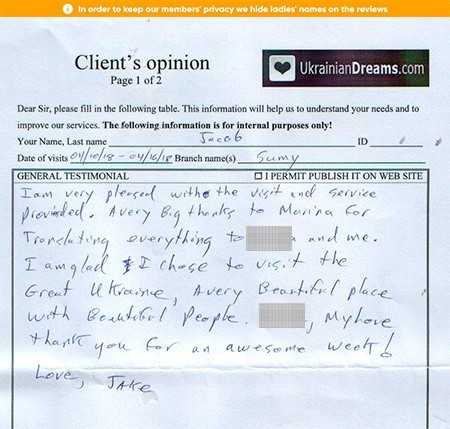 In order to keep our members' privacy we hide ladies' names on the reviews
Client's opinion
Page 1 of 2
UkrainianDreams.com
Dear Sir, please fill in the following table. This information will help us to understand your needs and to
improve our services. The following information is for internal purposes only!
Your Name, Last name Jacob ID
Date of visits 04/10/18 - 04/16/18 Branch name(s) Sumy
GENERAL TESTIMONIAL ☐ I PERMIT PUBLISH IT ON WEB SITE
I am very pleased with the visit and service
provided. A very Big thanks to Marina for
Translating everything to and me.
I am glad I chose to visit the
Great Ukraine, A very Beautiful place
with Beautiful People. , My Love
thank you for an awesome week!
Love, JAKe